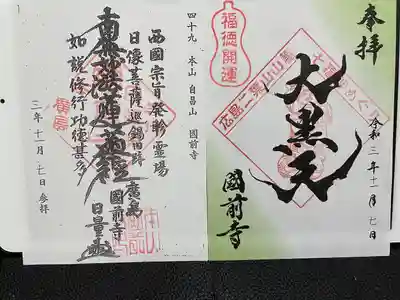 奉拝
令和三年十一月七日
大黒天
福徳開運
國前寺
四十九 本山 自昌山 國前寺
西國宗旨発軫霊場
日像菩薩巡錫
廣島
國前寺
日量
南無妙法蓮華経
如説修行功徳甚多
三年十一月七日参拝
廣島